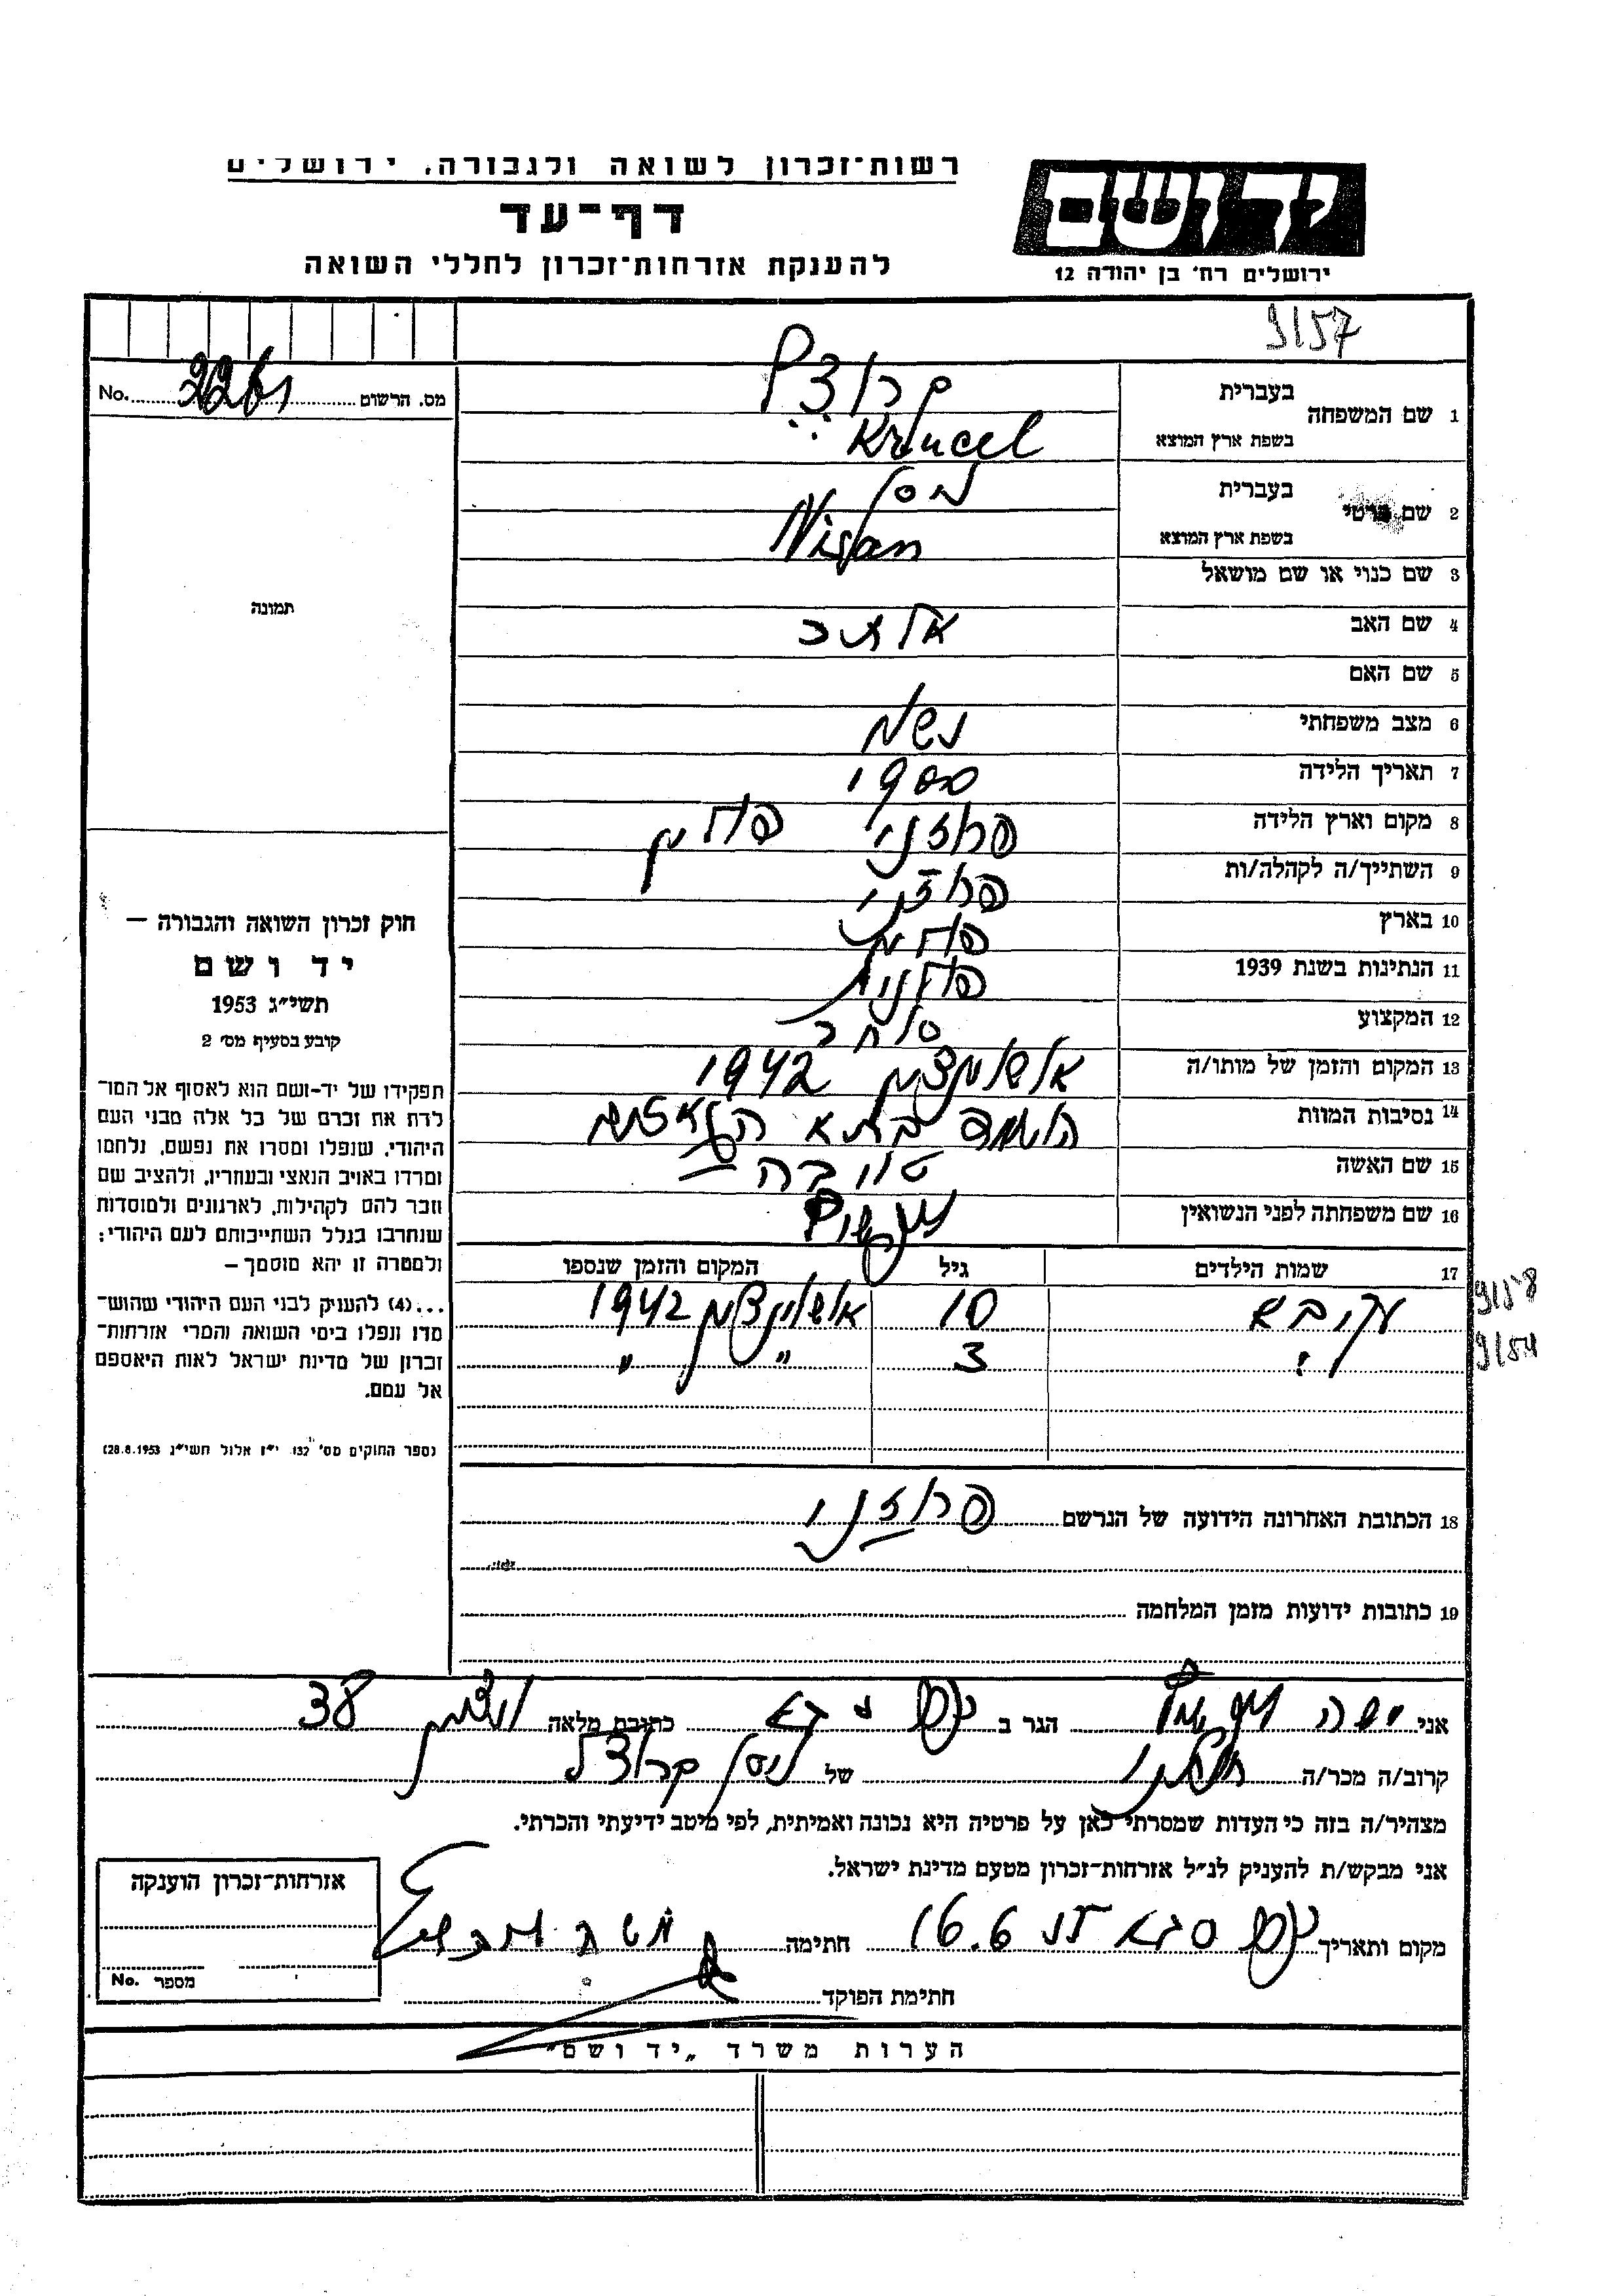 רשות־זכרון לשואה ולגבורה, ירושלים
דף־עד
להענקת אזרחות־זכרון לחללי השואה
יד ושם
ירושלים רח׳ בן יהודה 12
9157
מס. הרשום 2261 No.
1 שם המשפחה
בעברית קרוצל
בשפת ארץ המוצא Krucel
2 שם פרטי
בעברית ניסן
בשפת ארץ המוצא Nisan
3 שם כנוי או שם מושאל
4 שם האב
5 שם האם
6 מצב משפחתי נשוי
7 תאריך הלידה 1900
8 מקום וארץ הלידה פולין
9 השתייך/ה לקהלה/ות
10 בארץ פולין
11 הנתינות בשנת 1939 פולנית
12 המקצוע סוחר
13 המקום והזמן של מותו/ה אושוויצים 1942
14 נסיבות המוות הושמד בתא הגאזים
15 שם האשה טובה
16 שם משפחתה לפני הנשואין
17 שמות הילדים גיל המקום והזמן שנספו
10 אושוויצים 1942
9158
? 3 " "
9159
18 הכתובת האחרונה הידועה של הנרשם
19 כתובות ידועות מזמן המלחמה
תמונה
חוק זכרון השואה והגבורה –
יד ושם
תשי״ג 1953
קובע בסעיף מס׳ 2
תפקידו של יד-ושם הוא לאסוף אל המו־
לדת את זכרם של כל אלה מבני העם
היהודי, שנפלו ומסרו את נפשם, נלחמו
ומרדו באויב הנאצי ובעוזריו, ולהציב שם
וזכר להם לקהילות, לארגונים ולמוסדות
שנחרבו בגלל השתייכותם לעם היהודי;
ולמטרה זו יהא מוסמך –
...(4) להעניק לבני העם היהודי שהוש־
מדו ונפלו בימי השואה והמרי אזרחות־
זכרון של מדינת ישראל לאות היאספם
אל עמם.
(ספר החוקים מס׳ 132, י״ז אלול תשי״ג 28.8.1953)
אני הגר ב כתובת מלאה 38
קרוב/ה מכר/ה של ניסן קרוצל
מצהיר/ה בזה כי העדות שמסרתי כאן על פרטיה היא נכונה ואמיתית, לפי מיטב ידיעתי והכרתי.
אני מבקש/ת להעניק לנ״ל אזרחות־זכרון מטעם מדינת ישראל.
מקום ותאריך 16.6 חתימה
חתימת הפוקד
אזרחות־זכרון הוענקה
מספר No.
הערות משרד „יד ושם״